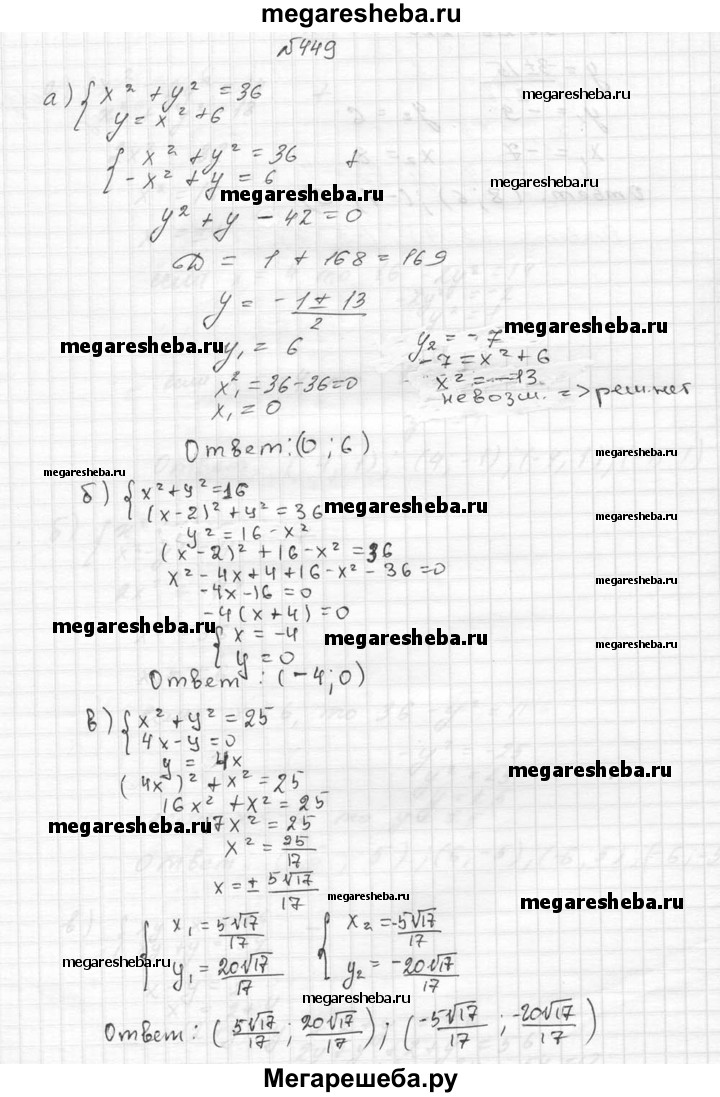 megaresheba.ru
№449
а) { x² + y² = 36
y = x² + 6
megaresheba.ru
{ x² + y² = 36 +
- x² + y = 6
megaresheba.ru
megaresheba.ru
y² + y - 42 = 0
D = 1 + 168 = 169
y = - 1 ± 13 / 2
megaresheba.ru
megaresheba.ru
y₁ = 6 y₂ = - 7
-7 = x² + 6
x₁² = 36 - 36 = 0 x² = -13
x₁ = 0 невозм. => реш. нет
Ответ: (0 ; 6)
megaresheba.ru
megaresheba.ru
б) { x² + y² = 16
(x-2)² + y² = 36
megaresheba.ru
y² = 16 - x²
(x-2)² + 16 - x² = 36
x² - 4x + 4 + 16 - x² - 36 = 0
megaresheba.ru
-4x - 16 = 0
-4(x + 4) = 0
megaresheba.ru
{ x = -4
megaresheba.ru
megaresheba.ru
y = 0
Ответ: (-4; 0)
в) { x² + y² = 25
4x - y = 0
y = 4x
megaresheba.ru
(4x)² + x² = 25
16x² + x² = 25
megaresheba.ru
17x² = 25
megaresheba.ru
x² = 25/17
x = ± 5√17/17
megaresheba.ru
megaresheba.ru
{ x₁ = 5√17/17 { x₂ = -5√17/17
megaresheba.ru
y₁ = 20√17/17 y₂ = -20√17/17
megaresheba.ru
Ответ: (5√17/17 ; 20√17/17); (-5√17/17 ; -20√17/17)
Мегарешеба.ру